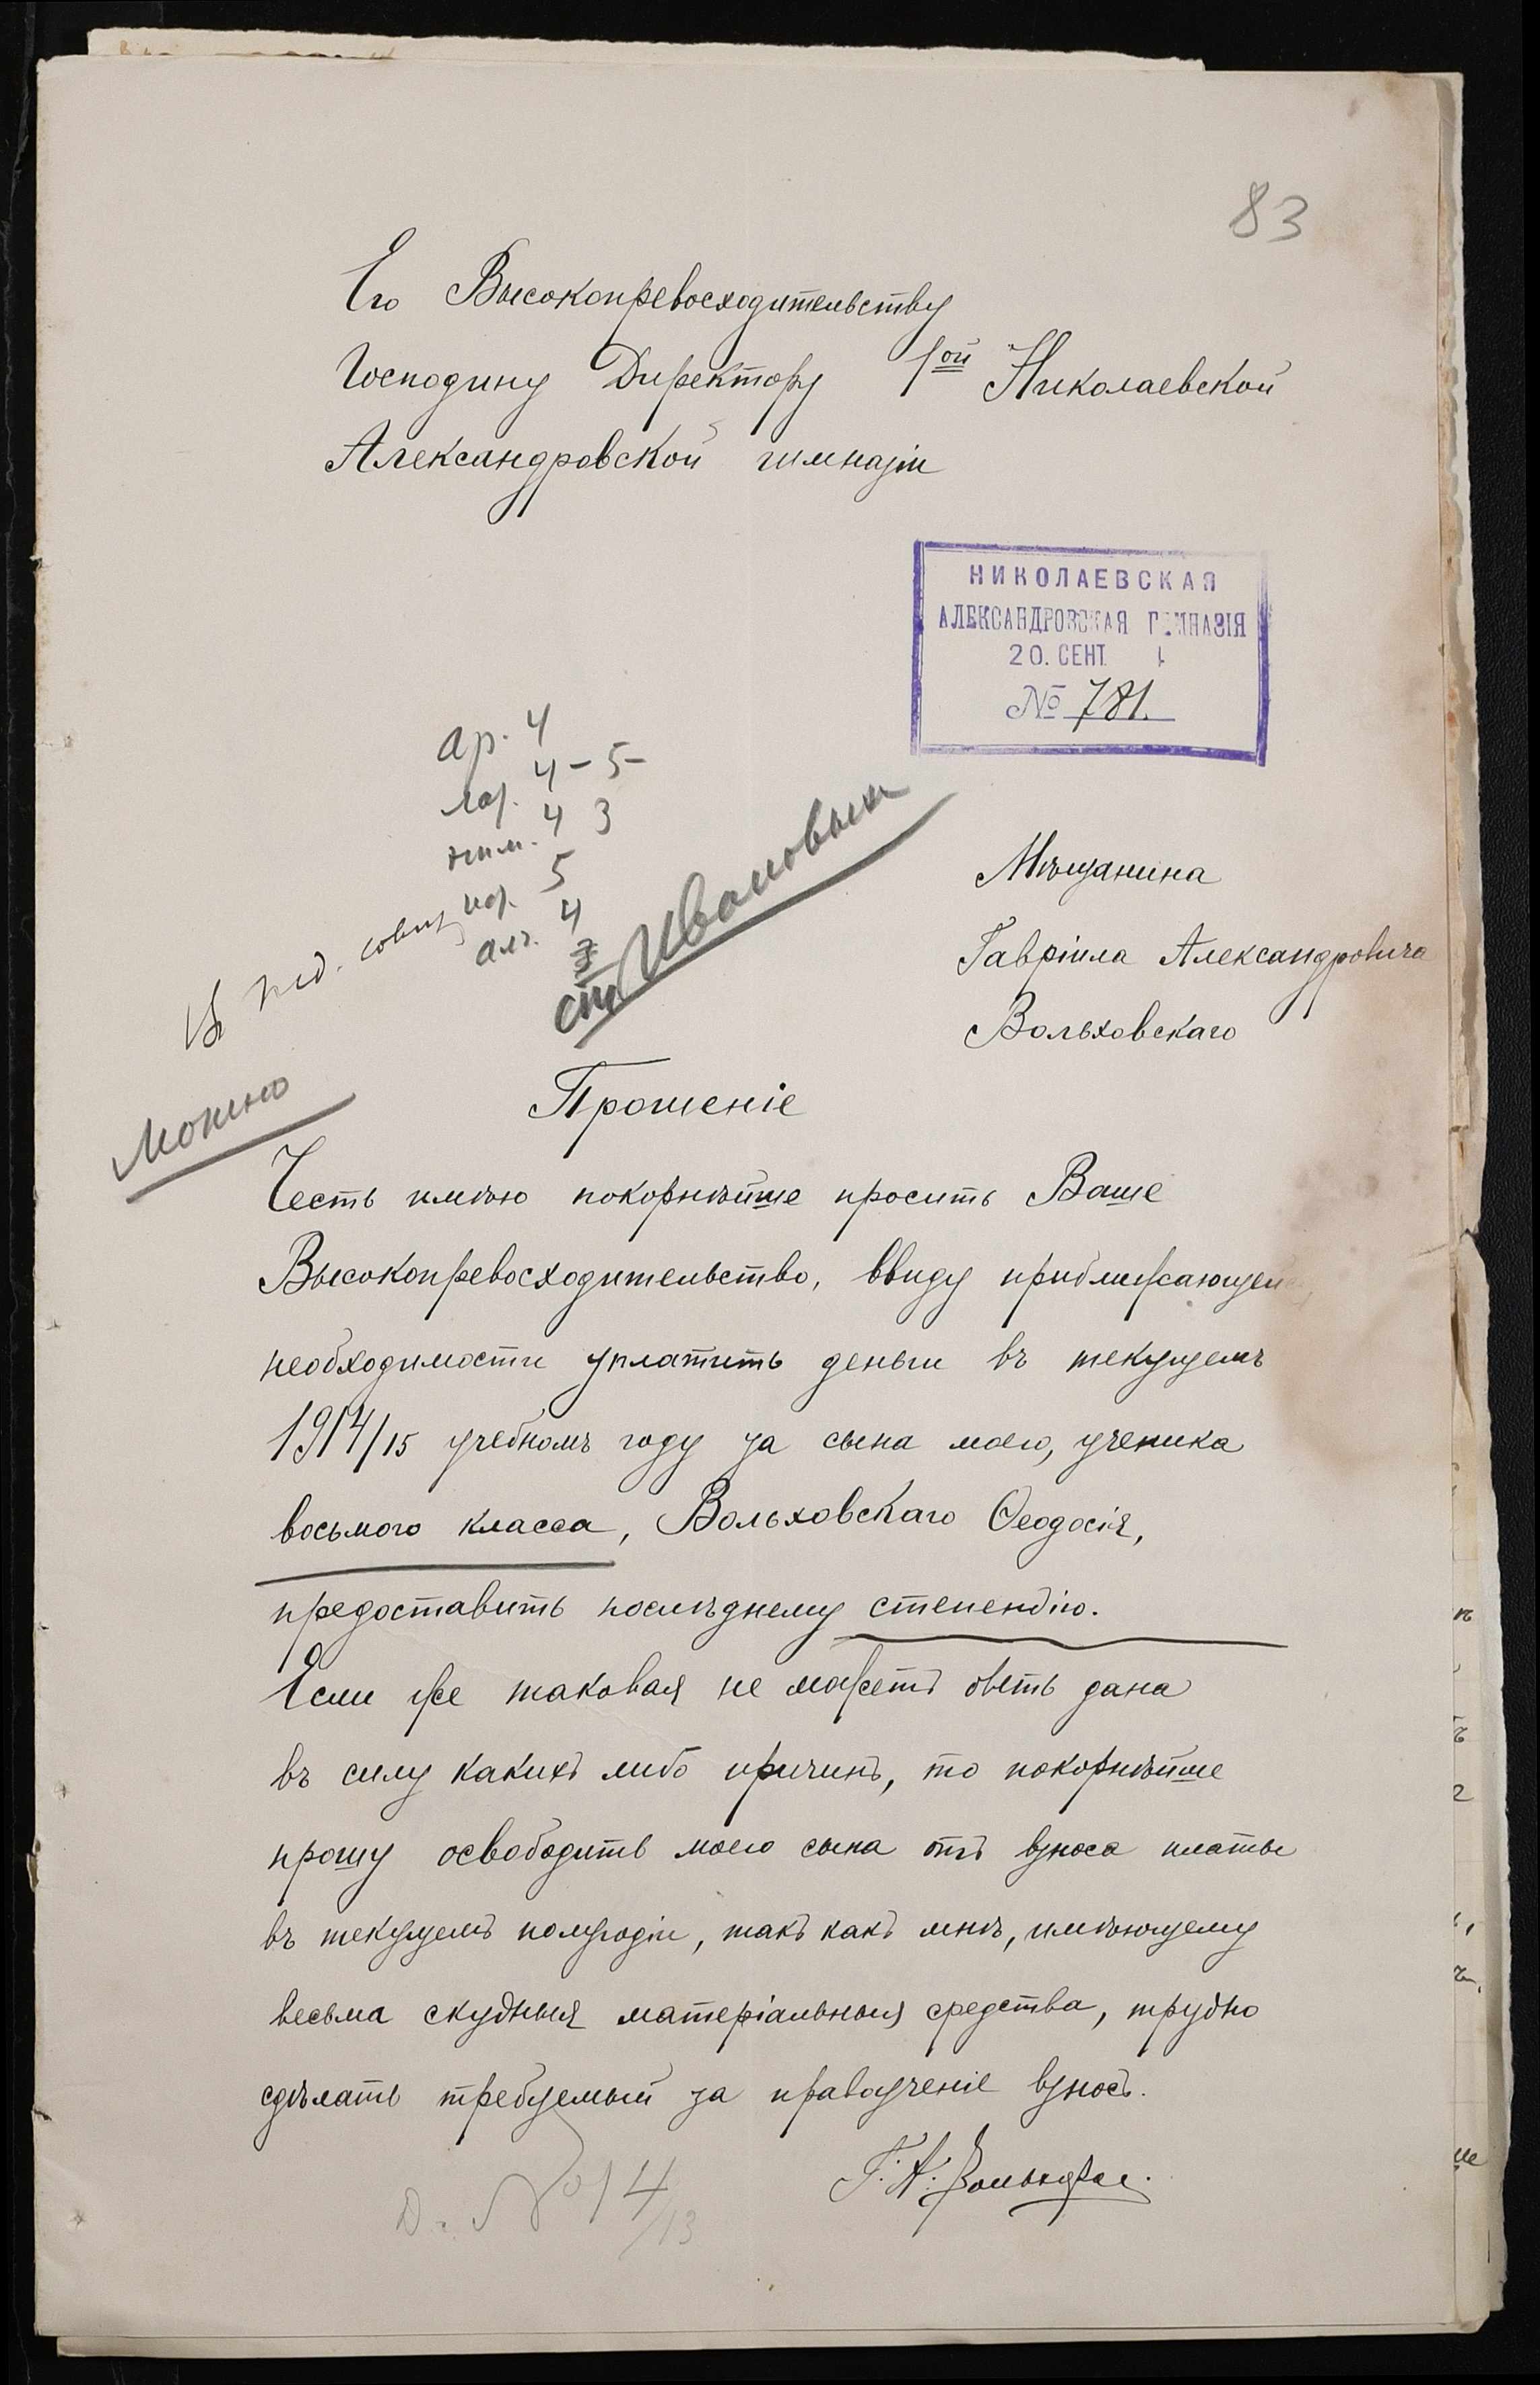 83
Его Высокопревосходительству
Господину Директору 1ой Николаевской
Александровской гимназіи
НИКОЛАЕВСКАЯ
АЛЕКСАНДРОВСКАЯ ГИМНАЗІЯ
20. СЕНТ
№ 781.
ар. 4
4 - 5 -
4 3
5
алг. 4
3
ст. Ивановым
Въ пед. совѣт
Можно
Мѣщанина
Гавріила Александровича
Вольховскаго
Прошеніе
Честь имѣю покорнѣйше просить Ваше
Высокопревосходительство, ввиду приближающейся
необходимости уплатить деньги въ текущемъ
1914/15 учебномъ году за сына моего, ученика
восьмого класса, Вольховскаго Ѳеодосія,
предоставить послѣднему степендію.
Если же таковая не можетъ быть дана
въ силу какихъ либо причинъ, то покорнѣйше
прошу освободить моего сына отъ взноса платы
въ текущемъ полугодіи, такъ какъ мнѣ, имѣющему
весьма скудныя матеріальныя средства, трудно
сдѣлать требуемый за правоученіе взносъ.
Г. А. Вольховскі.
Д. № 14/13